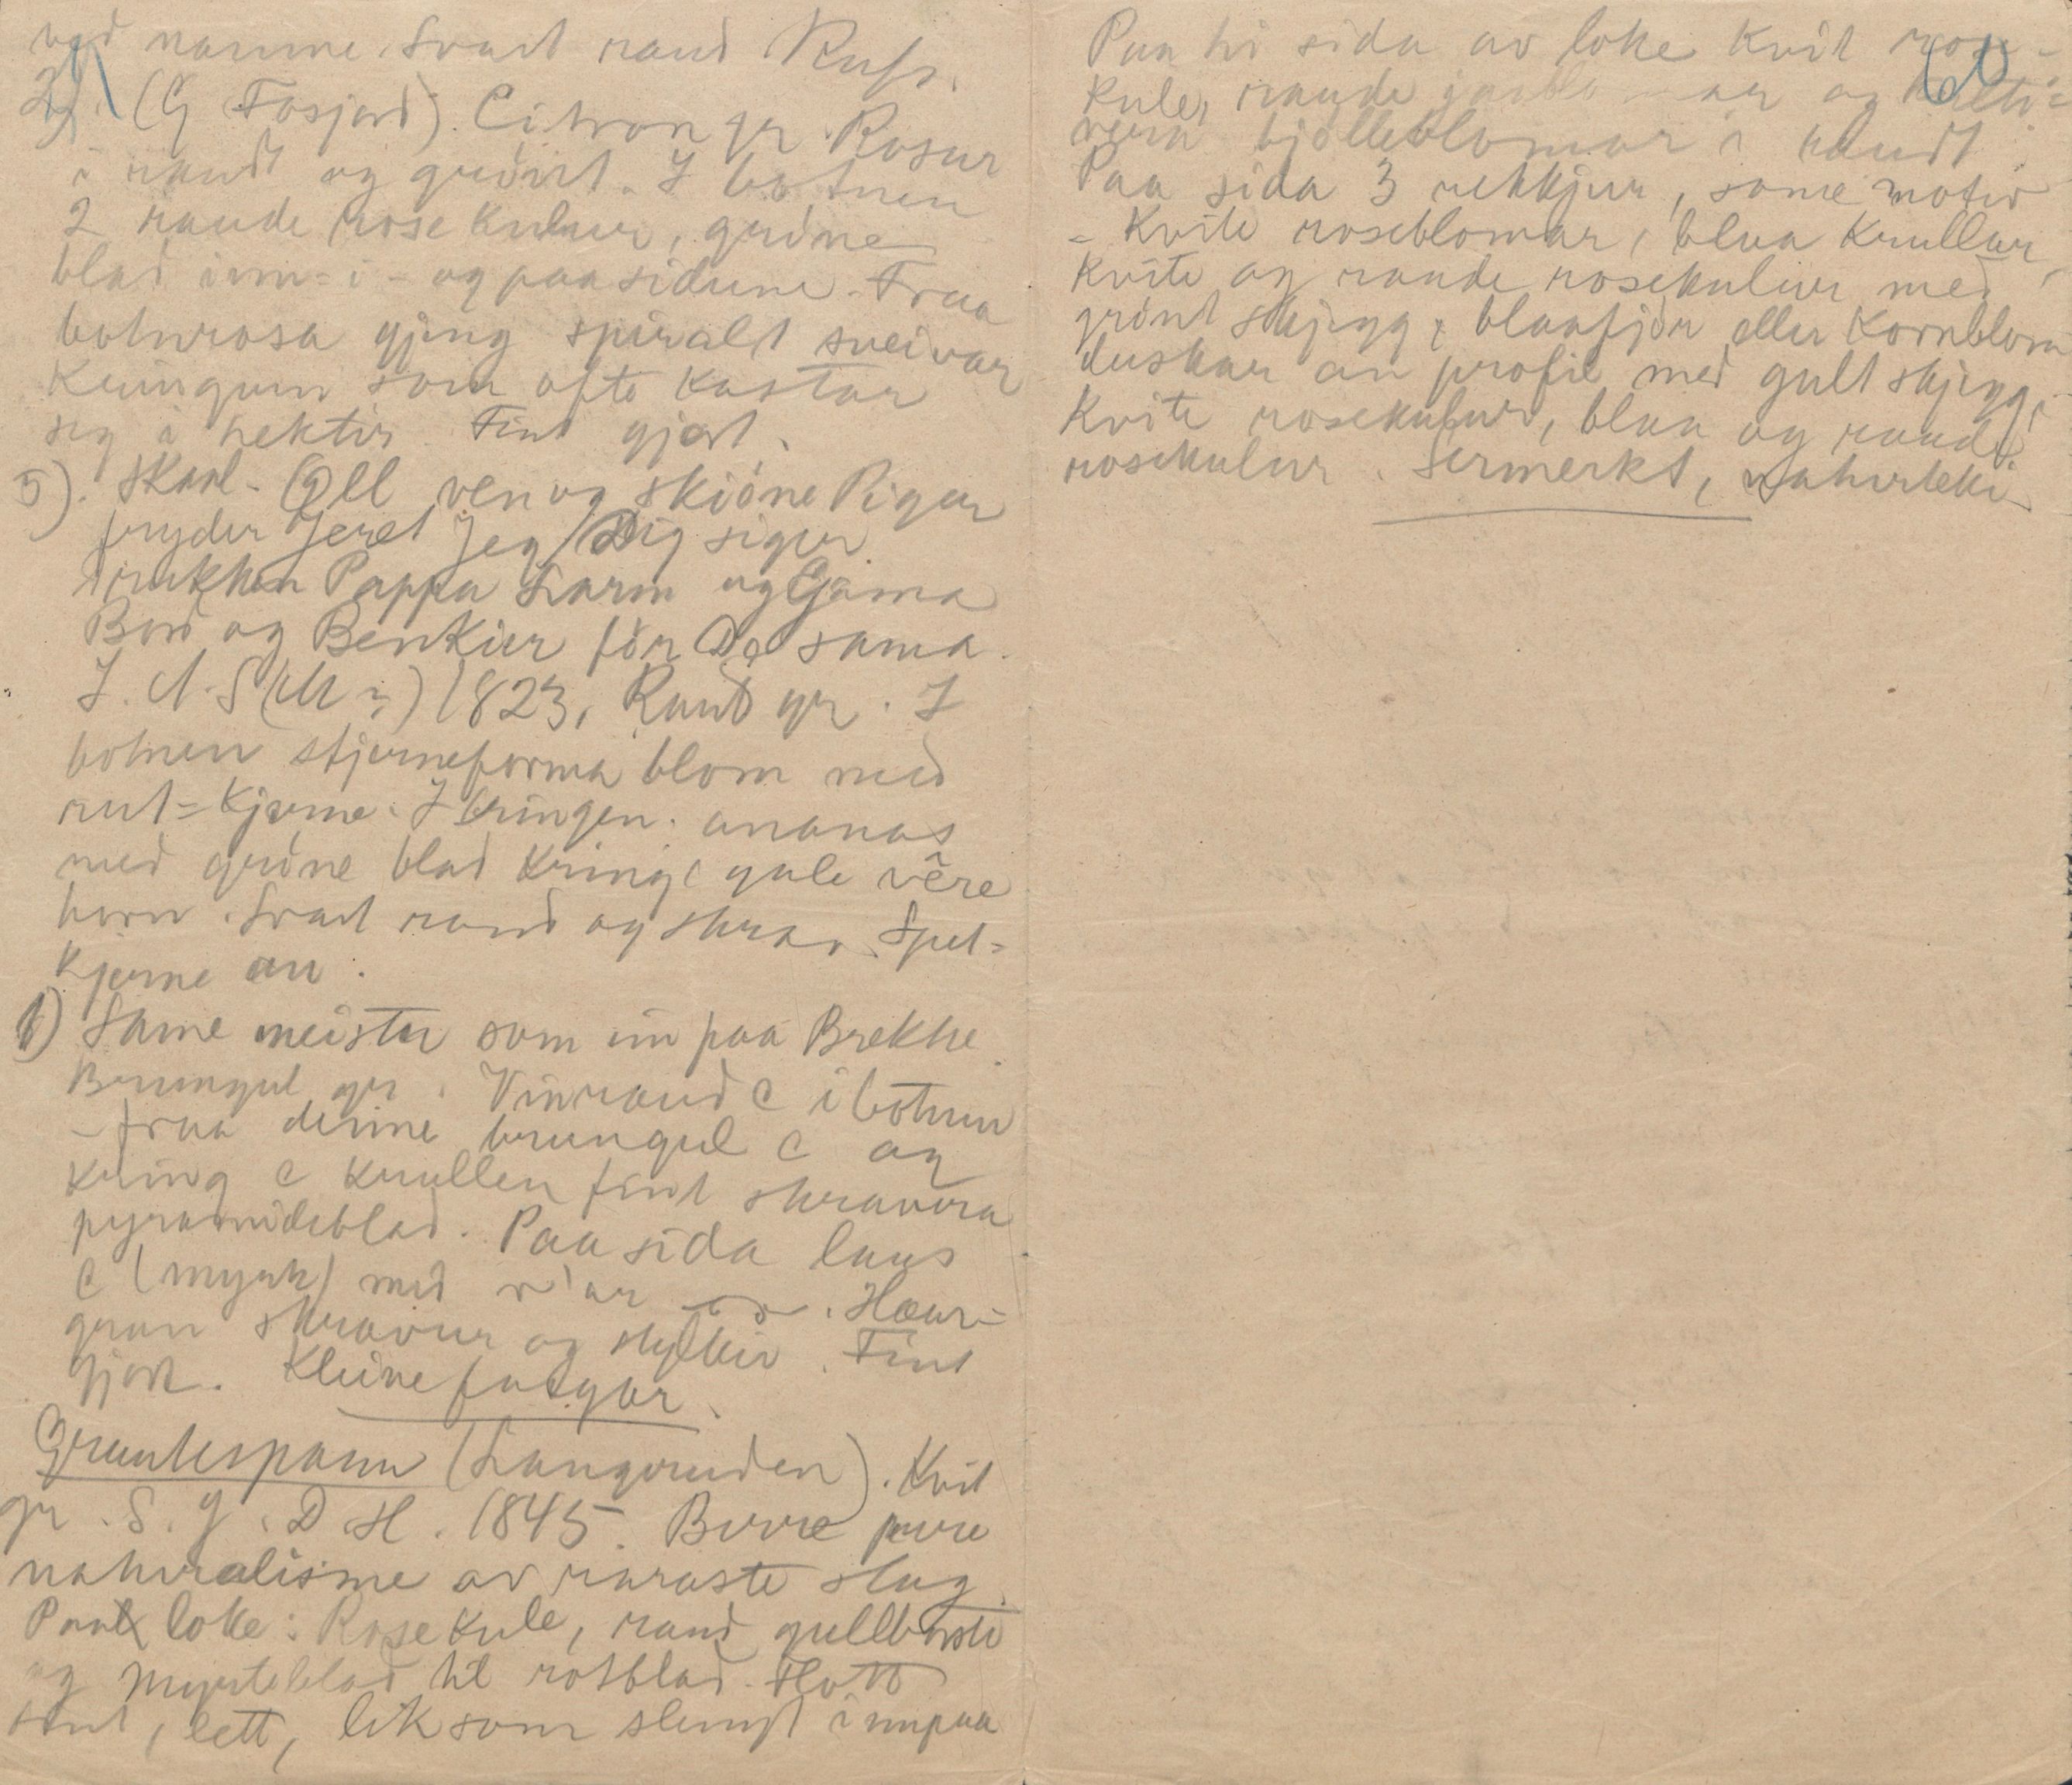 ved namme. Svart rand Rufs.
2). (G Fosjord). Citron gr. Rosur
i raudt og grönt. I botnen
2 raude rosekulur, gröne
blad inn-i- og paa sidune. Fraa
botnrosa gjeng spiralt sveivar
kringum som ofte kastar
seg i hektir. Fint gjort.
5). Skaal. Gll ven og skiöne Pigur
fryder Jeret Jeg Dig siger
drukken Pappa Larm og Gjama
Bord og Benkier för De sama.
I. A. S (M?) 1823. Raud gr. I
botnen stjerneforma blom med
rut-kjerne. I kringen ananas
med gröne blad kring, gule vêre
horn. Svart rand og skrav. Spel-
kjerne au.
6) Same meister som inn paa Brekke.
Brungul gr. Vinraud C i botnen
- fraa denne brungul C og
kring C krullen fint skravera
pyramideblad. Paa sida laus
C (mjuk) med r'ar. Haar-
gran skravur og stylkir. Fint
gjort. Kleine fargar.
Grautespann (Langeruden). Kvit
gr. S. J. D. H. 1845. Berre pure
naturalisme av raraste slag.
Paa loke: Rosekule, raud gullbuste
og myrteblad til rotblad. Flott
sent, lett, lik som slengt innpaa
60
Paa hi sida av loke kvit rose-
kule, raude ar og
bjölleblomar i raudt.
Paa sida 3 rekkjur, same motiv
- Kvite roseblomar, blaa krullar,
kvite og raude rosekulur med
grönt skjegg, blaafjör eller Kornblom
duskar au profil med gult skjegg,
Kvite rosekulur, blaa og raude
rosekulur. Sermerkt, naturteki